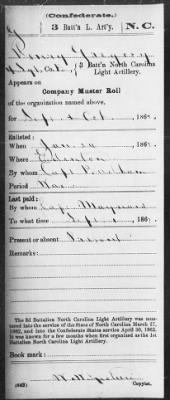 (Confederate.)
3 Batt'n L. Art'y. N. C.
3 Batt'n North Carolina
Light Artillery.
Appears on
Company Muster Roll
of the organization named above,
for Sept & Oct, 186
Enlisted:
When Jan 20, 186
Where Edenton
By whom Capt
Period War
Last paid:
By whom Capt Maynard
To what time Sept 1, 186
Present or absent Present
Remarks:
The 3d Battalion North Carolina Light Artillery was mus-
tered into the service of the State of North Carolina March 17,
1862, and into the Confederate States service April 30, 1862.
It was known for a few months when first organized as the 1st
Battalion North Carolina Light Artillery.
Book mark:
(642)
Copyist.